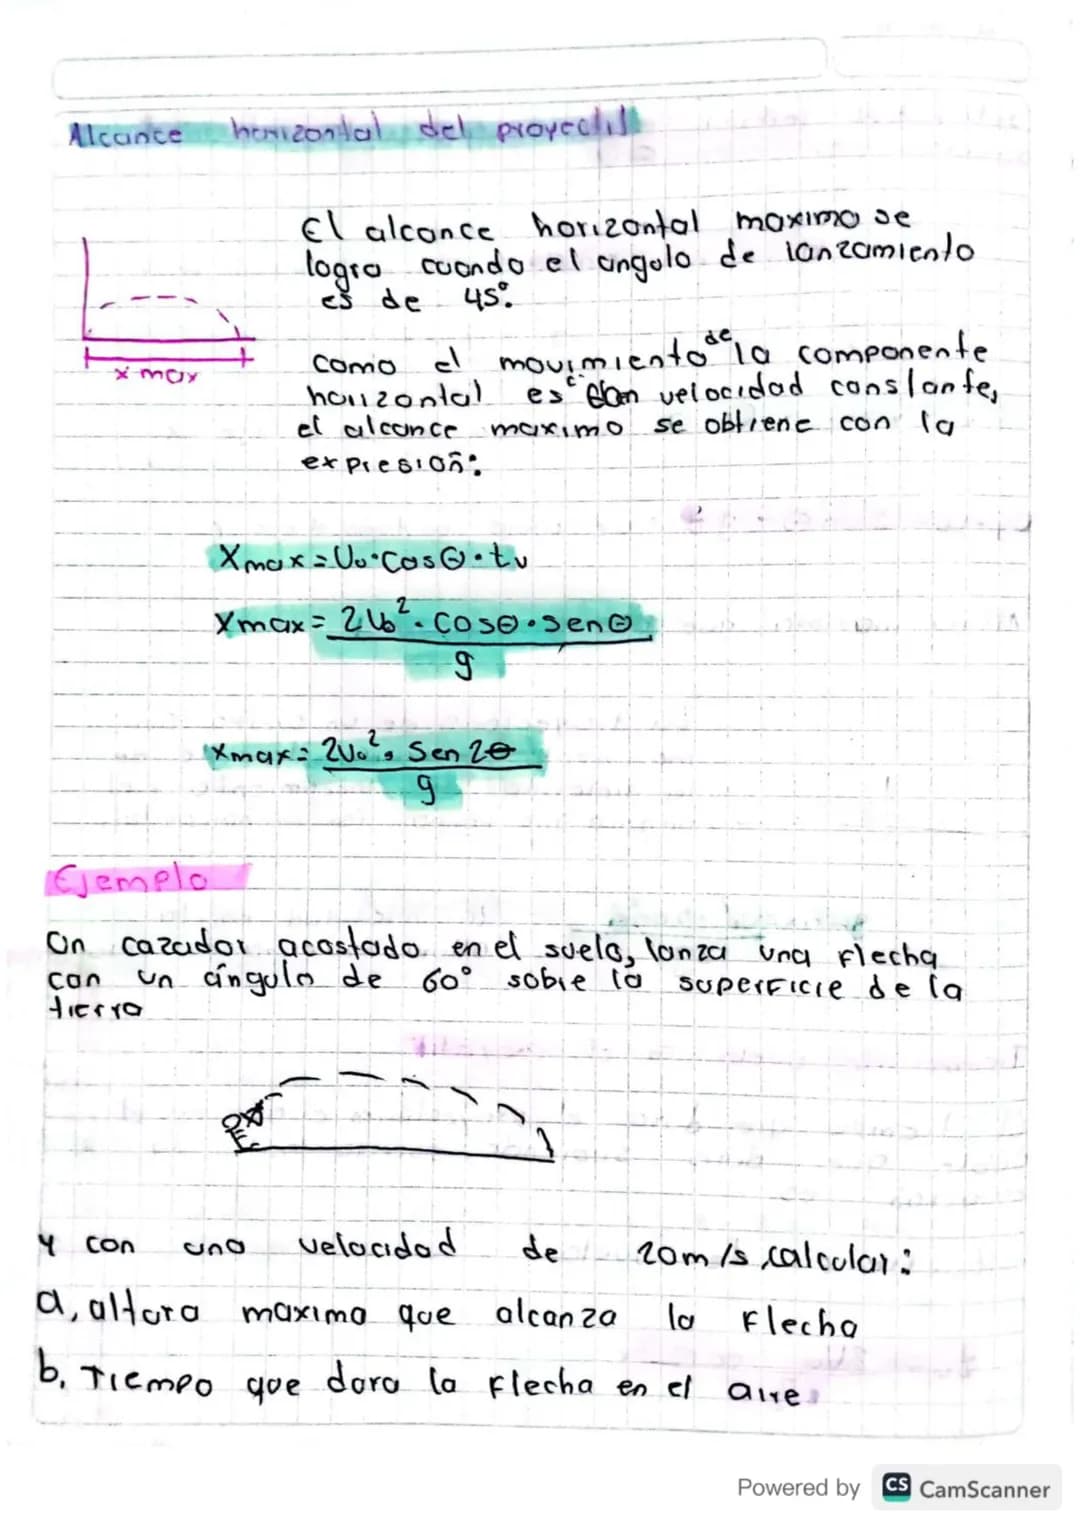 Alcance horizontal del proyectil
El alcance horizontal maximo se
logra cuando el angulo de lanzamiento
es de 45°.
x max
como el movimiento de la componente
horizontal es con velocidad constante,
el alcance maximo se obtiene con la
expresión:
Xmax = Vo · Cos Θ · tv
Xmax = 2Vo² · cos Θ · sen Θ
g
Xmax = 2Vo² · Sen 2Θ
g
Ejemplo
Un cazador acostado en el suelo, lanza una flecha
con un ángulo de 60° sobre la superficie de la
tierra
y con una velocidad de 20m/s, calcular:
a, altura maxima que alcanza la Flecha
b, Tiempo que dura la Flecha en el aire
Powered by CS CamScanner